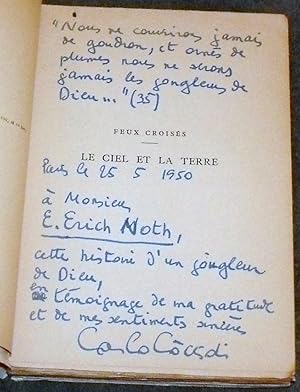 "Nous ne couvrirons jamais
de goudron, et ornés de
plumes nous ne serons
jamais les jongleurs de
Dieu..." (35)
FEUX CROISÉS
LE CIEL ET LA TERRE
Paris le 25 5 1950
à Monsieur
E. Erich Noth,
cette histoire d'un jongleur
de Dieu,
en témoignage de ma gratitude
et de mes sentiments sincères
Carlo Coccioli